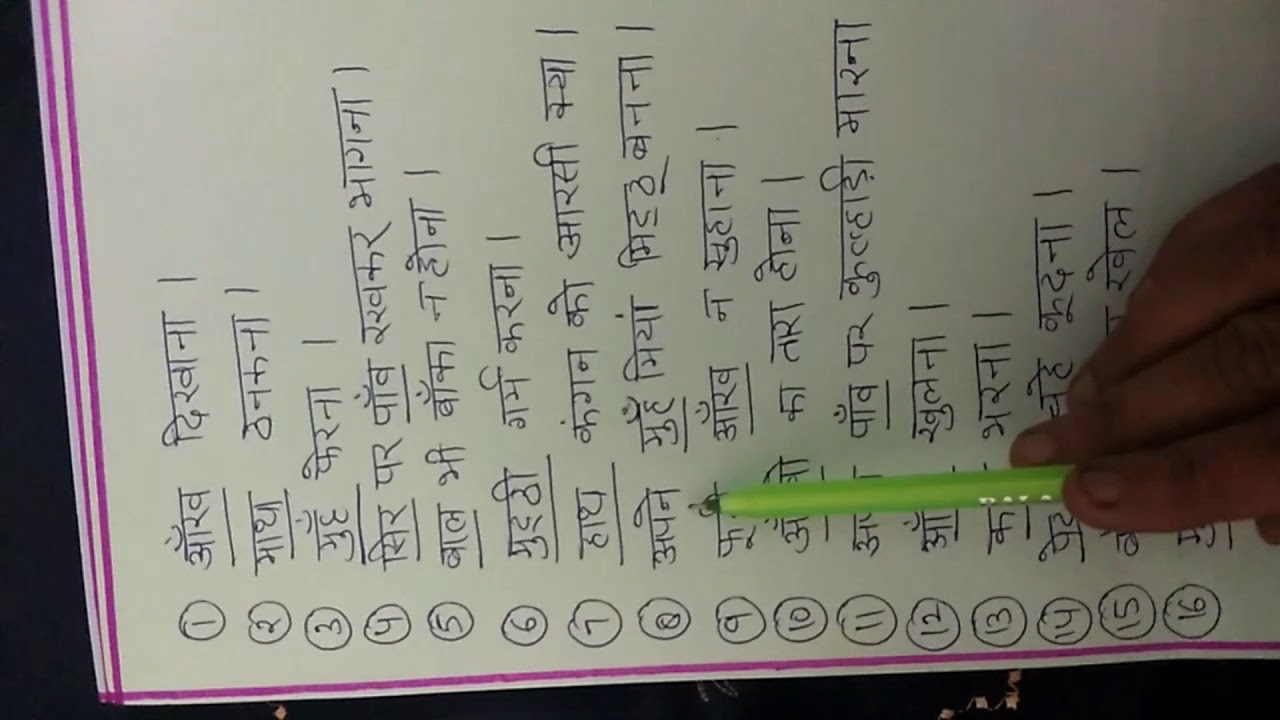 ① आँख दिखाना ।
② माथा ठनकना ।
③ मुँह फेरना ।
④ सिर पर पाँव रखकर भागना ।
⑤ बाल भी बाँका न होना ।
⑥ मुट्ठी गर्म करना ।
⑦ हाथ कंगन को आरसी क्या ।
⑧ अपने मुँह मियां मिट्ठू बनना ।
⑨ आँख न सुहाना ।
⑩ का तारा होना ।
⑪ पाँव पर कुल्हाड़ी मारना
⑫ खुलना ।
⑬ भरना ।
⑭ चूहे कूदना ।
⑮ खेल ।
⑯